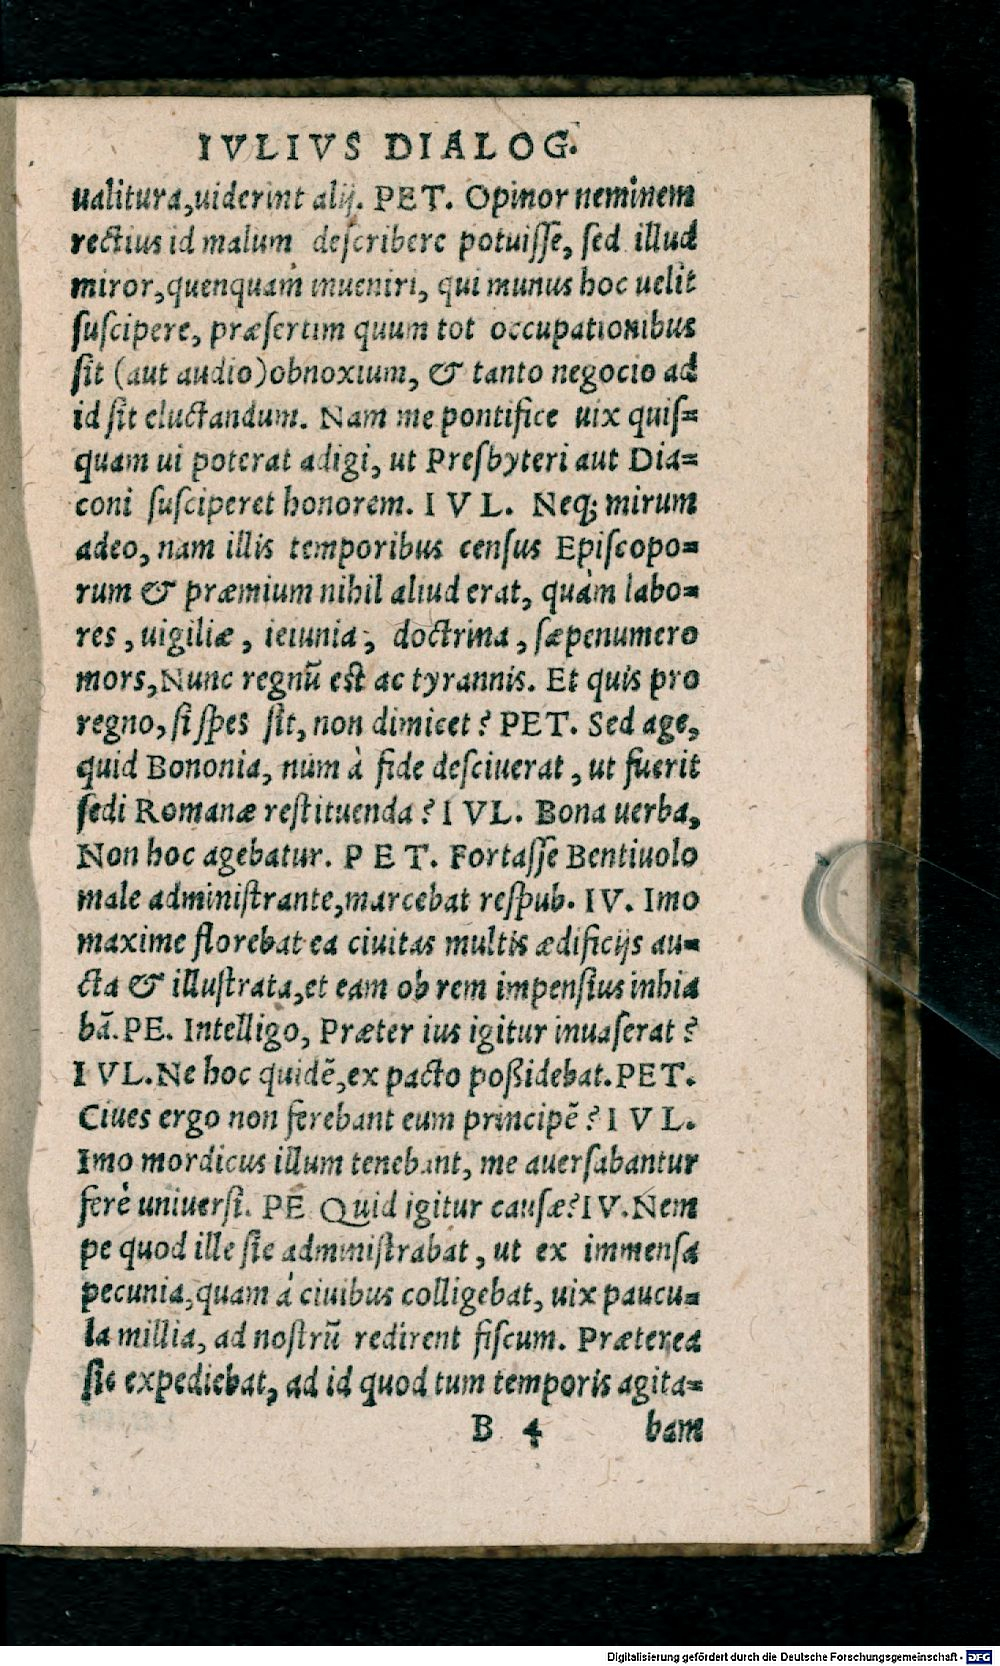 IVLIVS DIALOG.
ualitura,uiderint alij. PET. Opinor neminem
rectius id malum describere potuisse, sed illud
miror,quenquam inueniri, qui munus hoc uelit
suscipere, præsertim quum tot occupationibus
sit (aut audio)obnoxium, & tanto negocio ad
id sit eluctandum. Nam me pontifice uix quis=
quam ui poterat adigi, ut Presbyteri aut Dia=
coni susciperet honorem. IVL. Neq; mirum
adeo, nam illis temporibus census Episcopo=
rum & præmium nihil aliud erat, quàm labo=
res, uigiliæ, ieiunia, doctrina, sæpenumero
mors,Nunc regnū est ac tyrannis. Et quis pro
regno, si spes sit, non dimicet? PET. Sed age,
quid Bononia, num à fide desciuerat, ut fuerit
sedi Romanæ restituenda? IVL. Bona uerba,
Non hoc agebatur. PET. Fortasse Bentiuolo
male administrante,marcebat respub. IV. Imo
maxime florebat ea ciuitas multis ædificijs au=
cta & illustrata,et eam ob rem impensius inhia
bā.PE. Intelligo, Præter ius igitur inuaserat?
IVL.Ne hoc quidē,ex pacto poßidebat.PET.
Ciues ergo non ferebant eum principē? IVL.
Imo mordicus illum tenebant, me auersabantur
ferè uniuersi. PE Quid igitur causæ?IV.Nem
pe quod ille sic administrabat, ut ex immensa
pecunia,quam à ciuibus colligebat, uix paucu=
la millia, ad nostrū redirent fiscum. Præterea
sic expediebat, ad id quod tum temporis agita=
B 4 bam
Digitalisierung gefördert durch die Deutsche Forschungsgemeinschaft - DFG